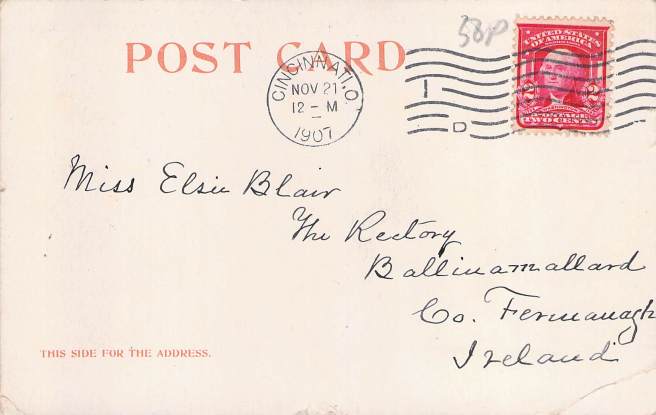 58p
POST CARD
CINCINNATI, O.
NOV 21
12 - M
1907
I
D
UNITED STATES
OF AMERICA
2 2
POSTAGE
TWO CENTS
Miss Elsie Blair
The Rectory
Ballinamallard
Co. Fermanagh
Ireland
THIS SIDE FOR THE ADDRESS.